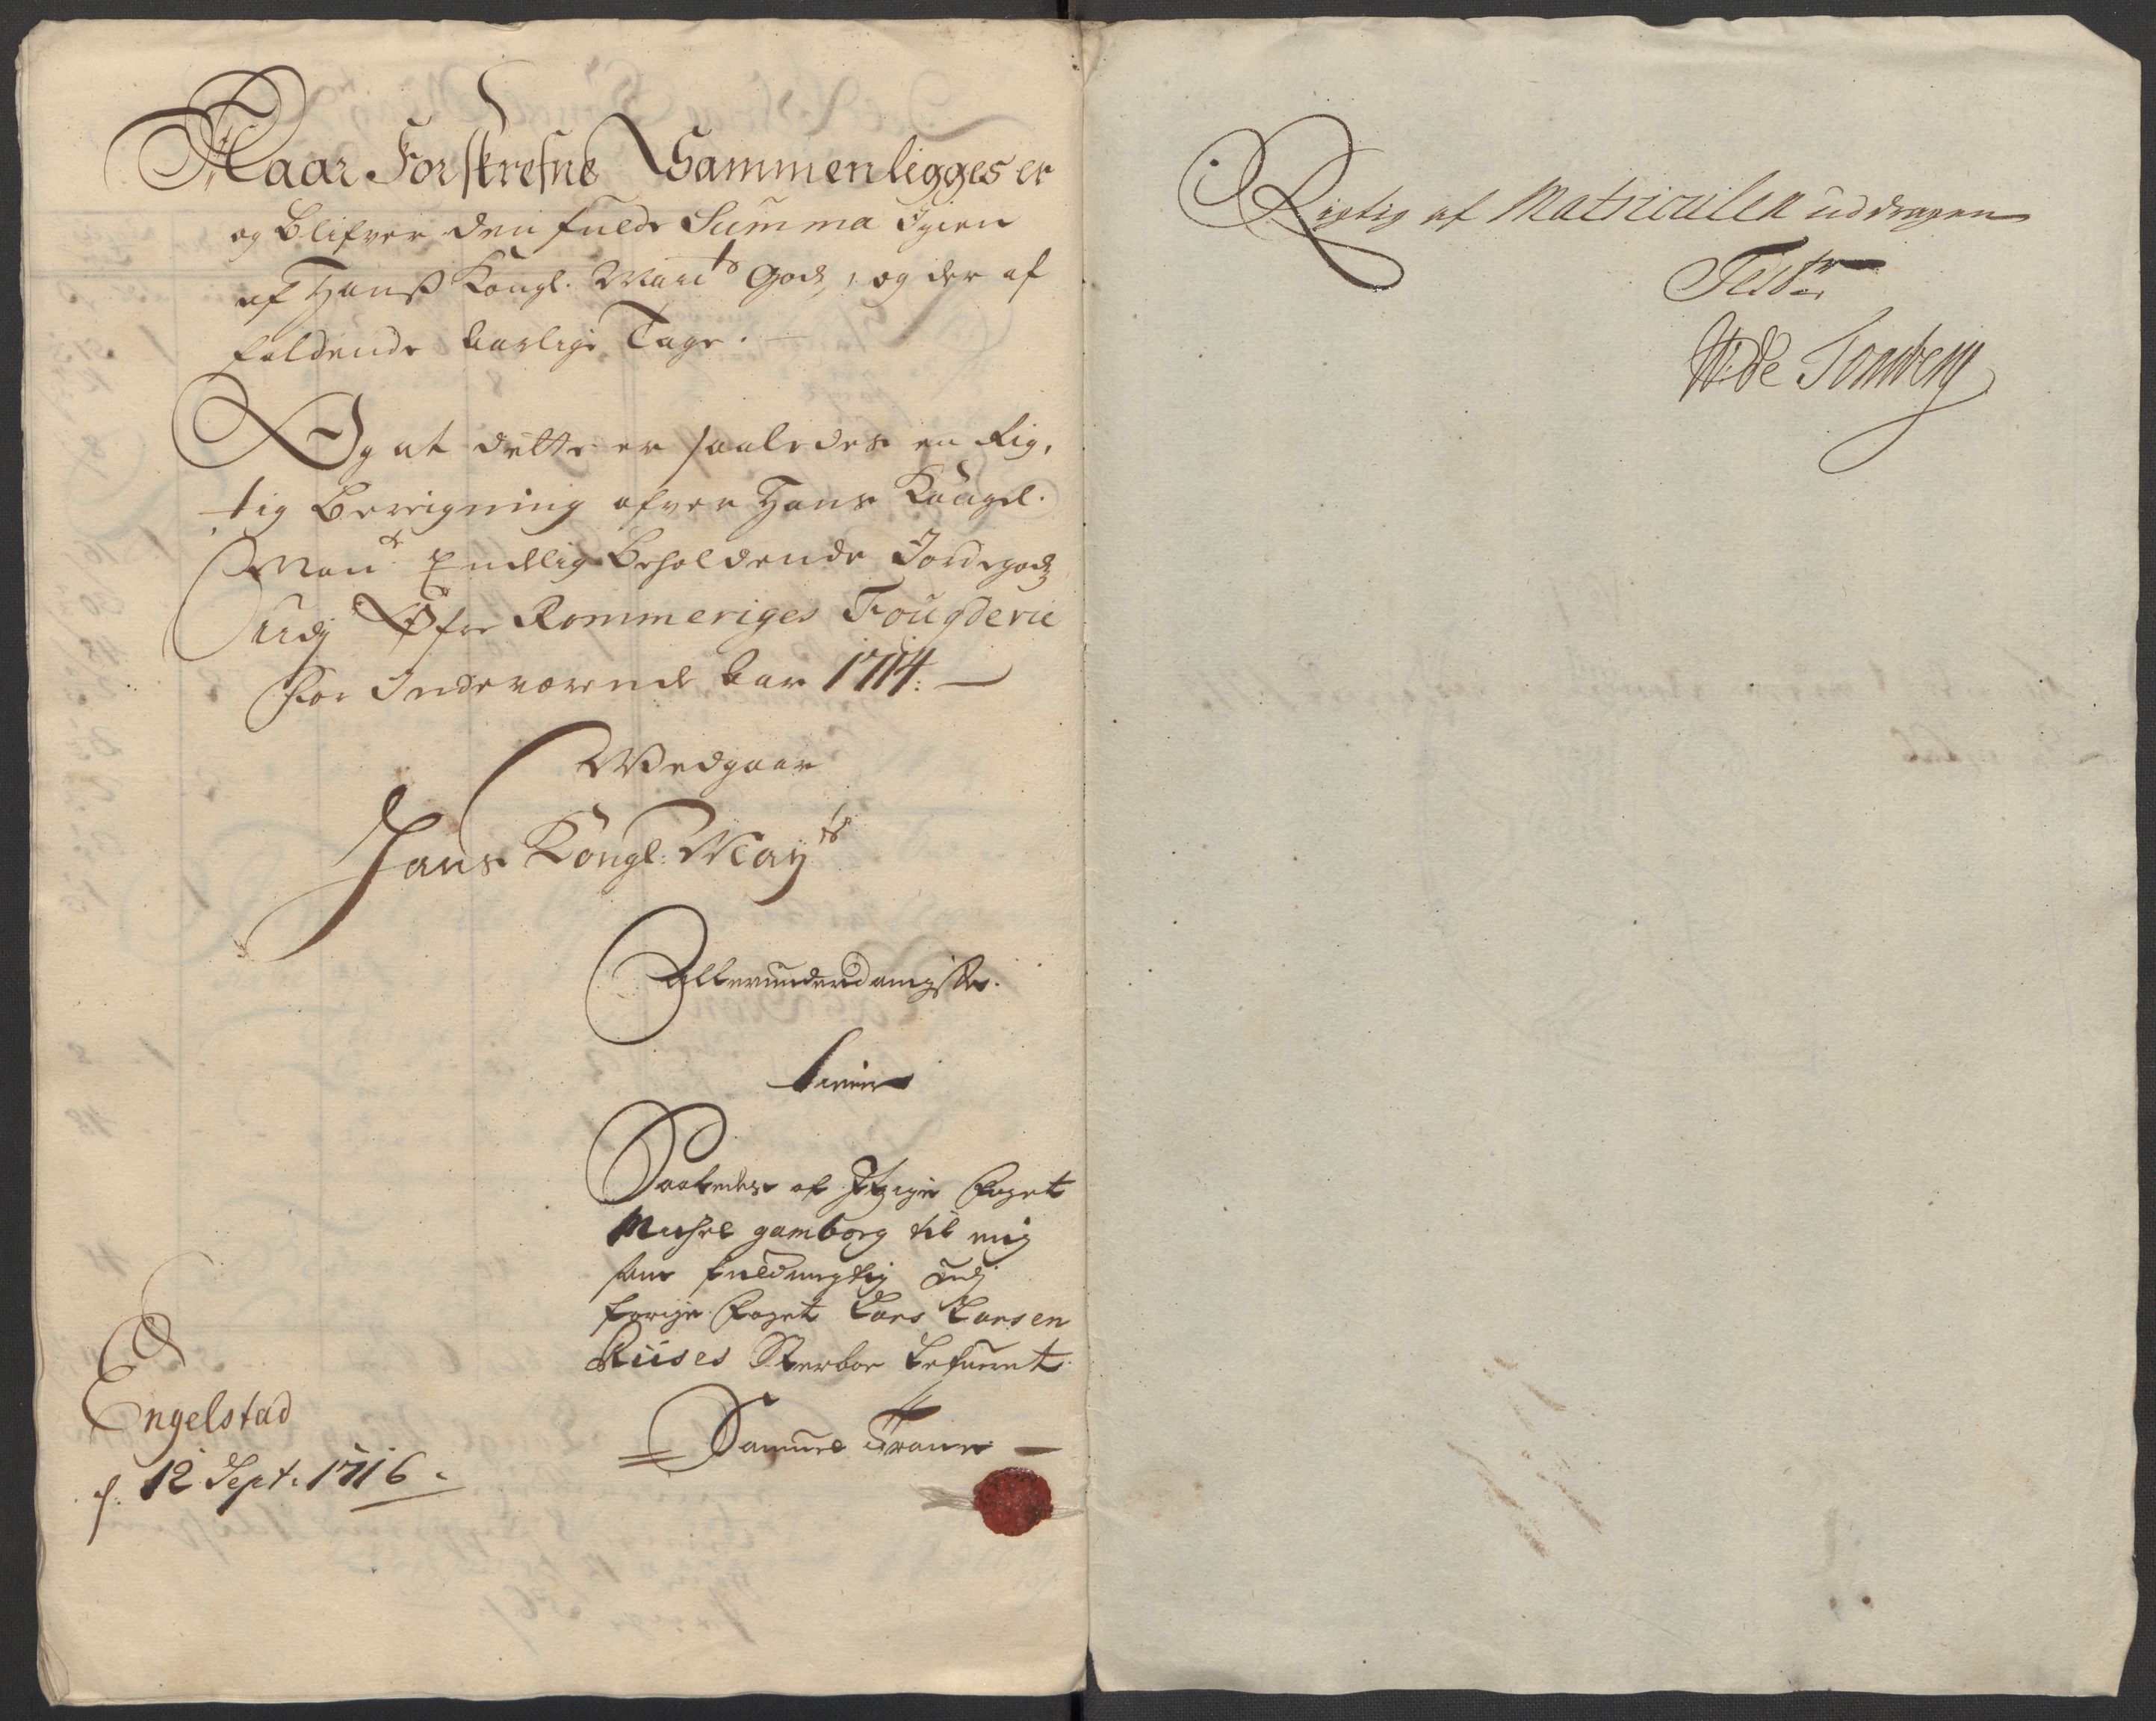 Naar Forskrefne Sammenligges er
og blifver den fulde Summa Igien
af Hanß Kongl. May.ts Gods, og der af
faldende Aarlige Tage.
Og at dette er saaledes en Rig,
tig Beregning ofver Hans Kongel.
May.ts Endelig Beholdende Jordegods
Udj Øfre Rommeriges Fougderie
For Indeværende Aar 1714.
Vedgaar
Hans Kongl: May.ts
Allerunderdanigste
tiener
Saaledes af Itzige Foget
Michel gamborg til mig
som fuldmegtig udj
forige Foget Lars Larsen
Riises Sterboe lefueret
Samuel Trane
Engelstad
d. 12 Sept. 1716.
Rigtig af Matriculen uddragen
Test.r
de Tonsberg